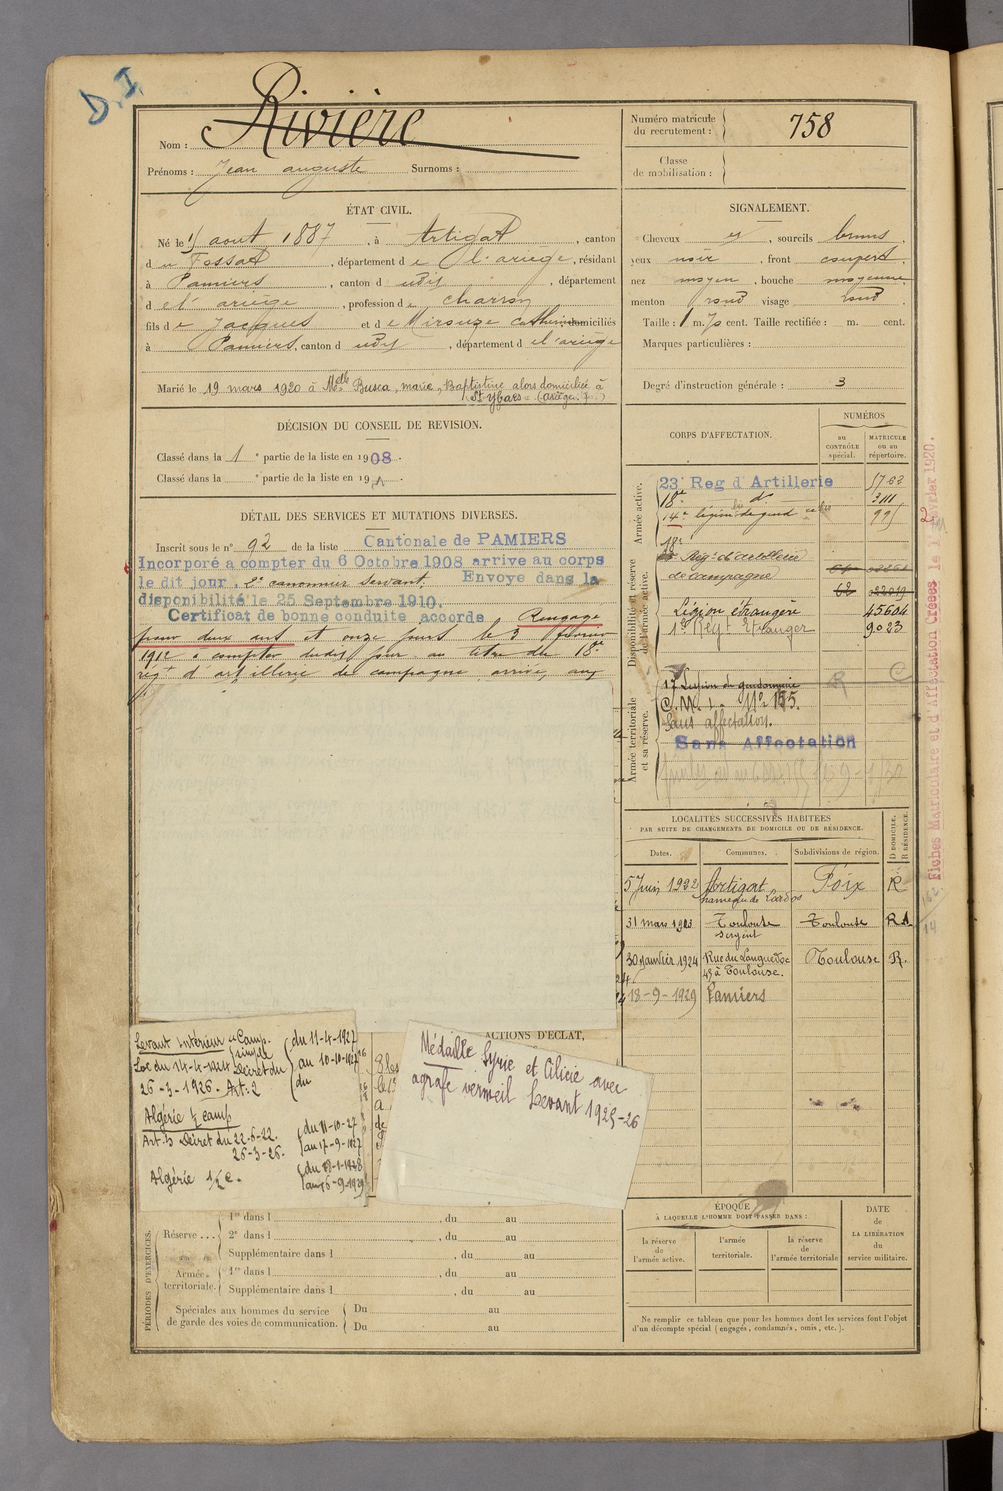 D.I.
Nom : Rivière
Prénoms : Jean auguste Surnoms :
Numéro matricule du recrutement : 758
Classe de mobilisation :
ÉTAT CIVIL.
Né le 15 aout 1887, à Artigat, canton
du Fossat, département de l'ariège, résidant
à Pamiers, canton d udit, département
d el'ariège, profession de charron
fils de Jacques et de Mirouze Catherine domiciliés
à Pamiers, canton d udit, département d el'ariège
Marié le 19 mars 1920 à Melle Busca, marie, Baptistine alors domiciliée à
St Ybars (Ariège)
SIGNALEMENT.
Cheveux et, sourcils bruns,
yeux noir, front couvert,
nez moyen, bouche moyenne,
menton rond visage rond
Taille : 1 m. 70 cent. Taille rectifiée : m. cent.
Marques particulières :
Degré d'instruction générale : 3
DÉCISION DU CONSEIL DE REVISION.
Classé dans la 1e partie de la liste en 1908.
Classé dans la e partie de la liste en 19
DÉTAIL DES SERVICES ET MUTATIONS DIVERSES.
Inscrit sous le n° 92 de la liste Cantonale de PAMIERS
Incorporé a compter du 6 Octobre 1908 arrive au corps
le dit jour, 2e canonnier servant. Envoye dans la
disponibilité le 25 Septembre 1910.
Certificat de bonne conduite accorde Rengagé
pour deux ans et onze jours le 3 février
1912 à compter dudit jour au titre du 18e
régt d'artillerie de campagne, arrivé, au
CORPS D'AFFECTATION.
NUMÉROS
au CONTRÔLE spécial.
MATRICULE ou au répertoire.
Armée active.
23e Reg d'Artillerie 5763
18e do 3111
14e légion de gend 991
Disponibilité et réserve de l'armée active.
18e
Régt d'artillerie
de campagne
62
Légion étrangère 45604
1er Régt Etranger 9023
Armée territoriale et sa réserve.
17 Légion de gendarmerie R C
C.M.I. No 155.
Sans affectation.
Sans Affectation
Fiches Matriculaire et d'Affectation Créées le 2 Février 1920.
LOCALITÉS SUCCESSIVES HABITÉES
PAR SUITE DE CHANGEMENTS DE DOMICILE OU DE RÉSIDENCE.
Dates. Communes. Subdivisions de région. D DOMICILE. R RÉSIDENCE.
5 Juin 1922 Artigat Foix R
hameau de
31 mars 1923 Toulouse Toulouse R
sergent
30 janvier 1924 Rue du Languedoc Toulouse R.
45 à Toulouse.
18-9-1929 Pamiers
ACTIONS D'ÉCLAT,
Levant Intérieur 1/2 Camp. simple
Loi du 14-4-1924 Décret du
26-3-1926. Art: 2
du 11-4-1927
au 10-10-1927
du
Algérie 1/2 camp
Art. 5 Décret du 22-6-22.
26-3-26.
du 11-10-27
au 17-9-1927
Algérie 1/2 c.
du 13-1-1928
au 16-9-1929
Médaille Syrie et Cilicie avec
agrafe vermeil Levant 1925-26
PÉRIODES D'EXERCICES.
Réserve ...
1re dans l , du au
2e dans l , du au
Supplémentaire dans l , du au
Armée territoriale.
1re dans l , du au
Supplémentaire dans l , du au
Spéciales aux hommes du service
de garde des voies de communication.
Du au
Du au
ÉPOQUE
À LAQUELLE L'HOMME DOIT PASSER DANS :
la réserve de l'armée active.
l'armée territoriale.
la réserve de l'armée territoriale
DATE de LA LIBÉRATION du service militaire.
Ne remplir ce tableau que pour les hommes dont les services font l'objet
d'un décompte spécial (engagés, condamnés, omis, etc.).